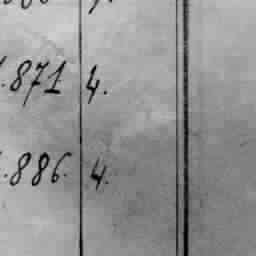 .871 4.
.886. 4.